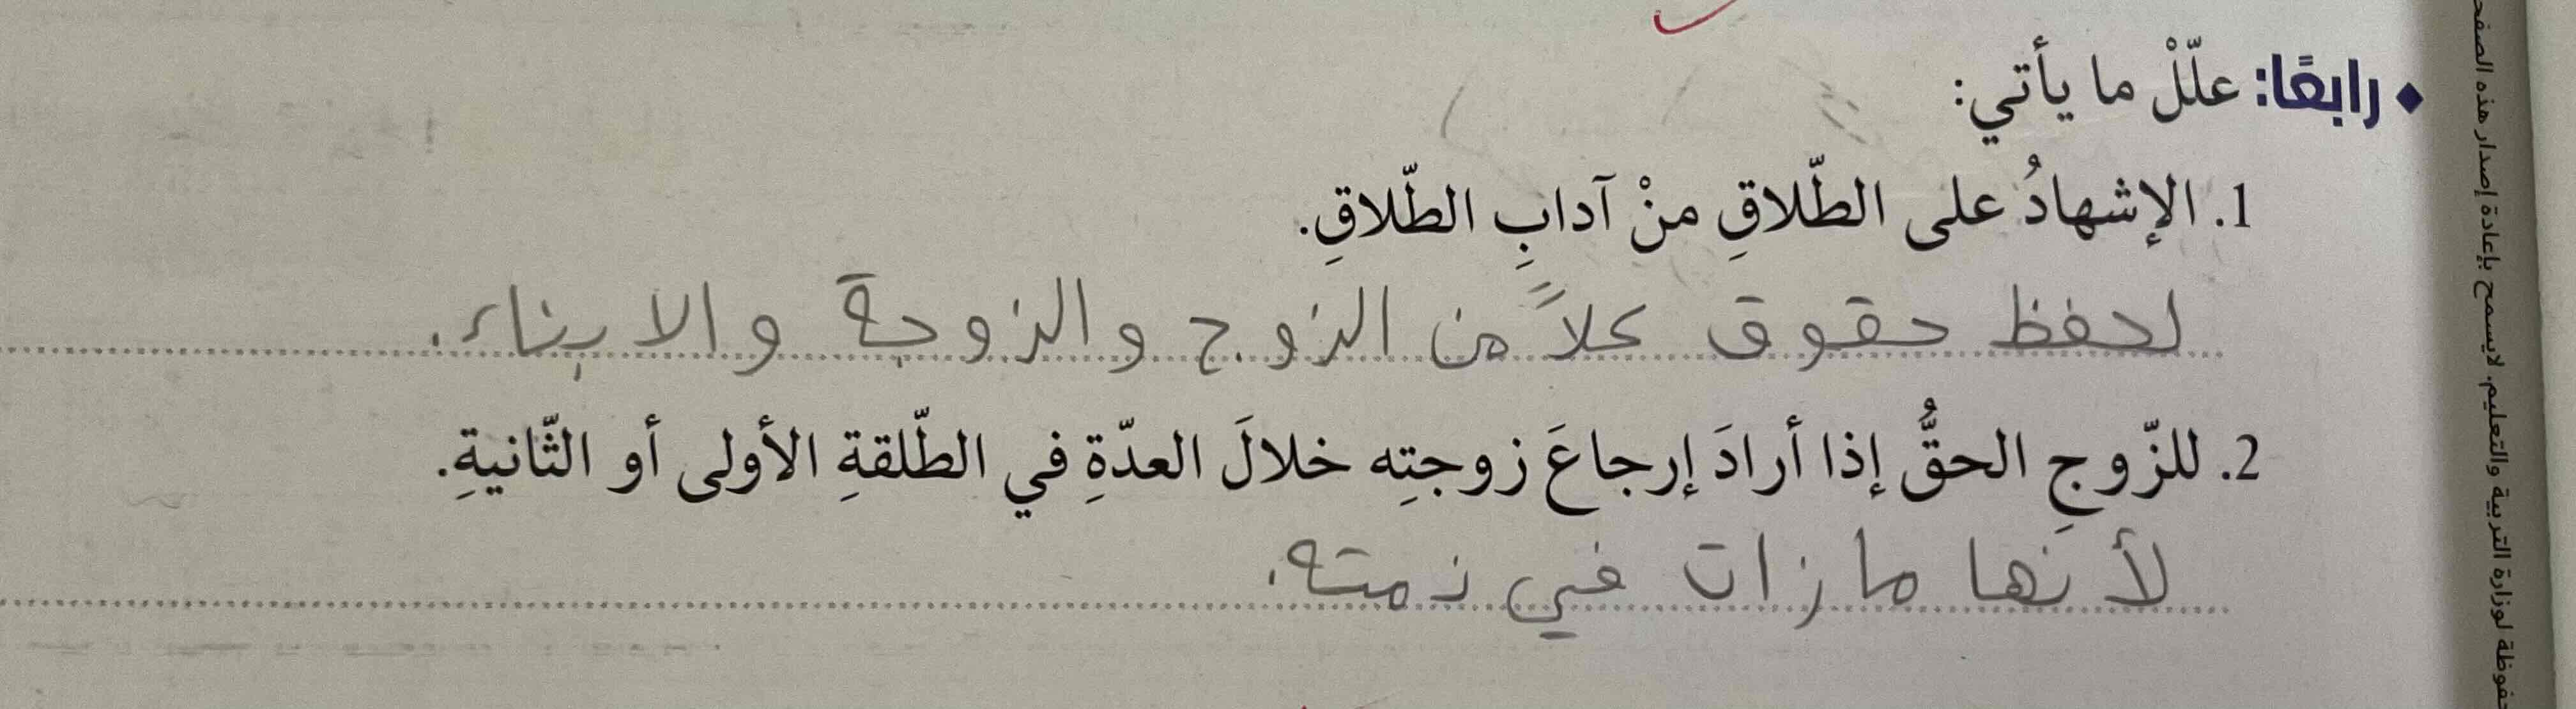 رابعًا: علّلْ ما يأتي:
1. الإشهادُ على الطّلاقِ منْ آدابِ الطّلاقِ.
لحفظ حقوق كلاً من الزوج والزوجة والابناء.
2. للزّوجِ الحقُّ إذا أرادَ إرجاعَ زوجتِه خلالَ العدّةِ في الطّلقةِ الأولى أو الثّانيةِ.
لأنها مازات في ذمته.
محفوظة لوزارة التربية والتعليم. لايسمح بإعادة إصدار هذه الصفحة